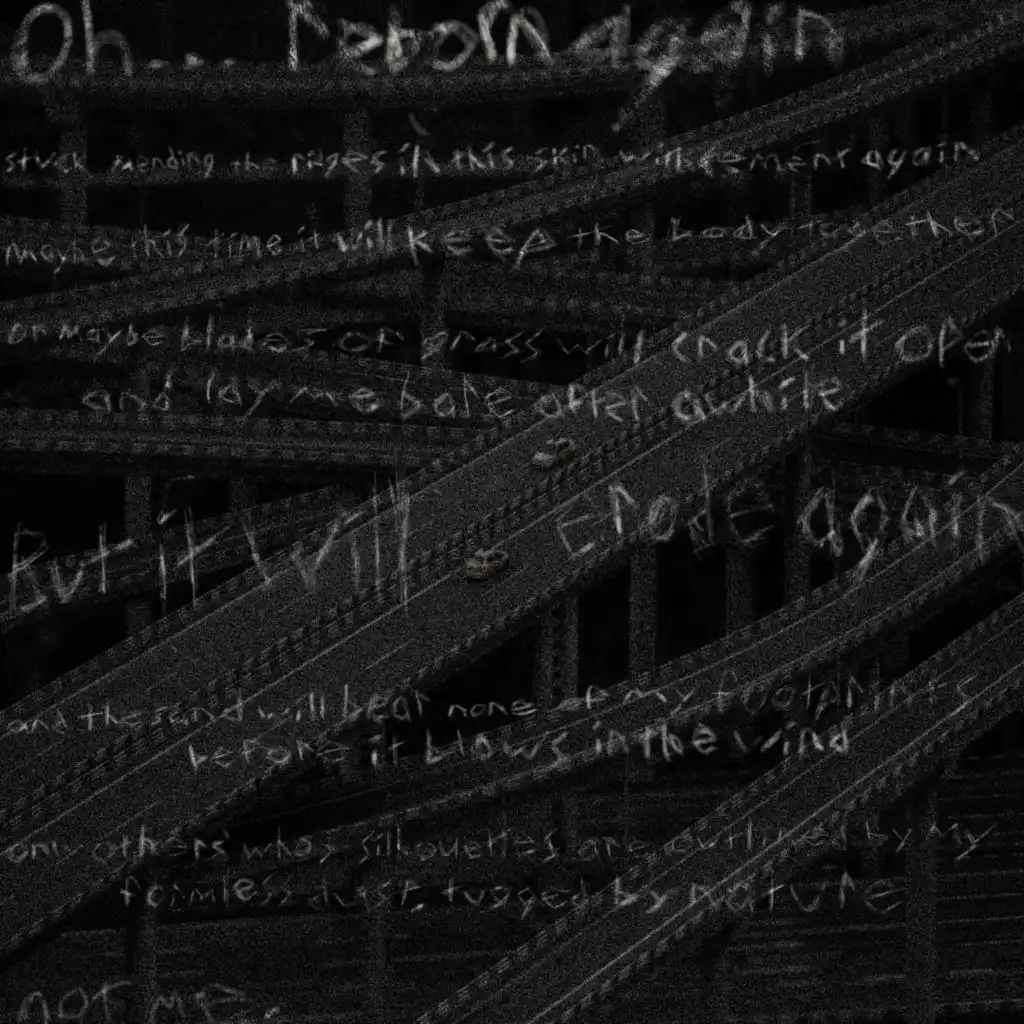 Oh... reborn again
stuck mending the ridges in this skin will cement again
maybe this time it will keep the body together
or maybe blades of grass will crack it open
and lay me bare after awhile
But it will erode again
and the sand will bear none of my footprints
before it blows in the wind
only others whos silhouettes are outlined by my
formless dust, tugged by nature
not me.